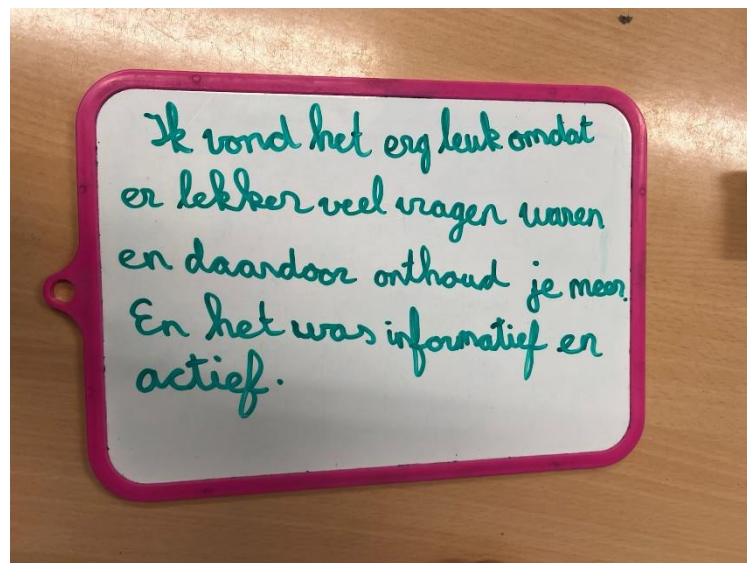 Ik vond het erg leuk omdat
er lekker veel vragen waren
en daardoor onthoud je meer.
En het was informatief en
actief.